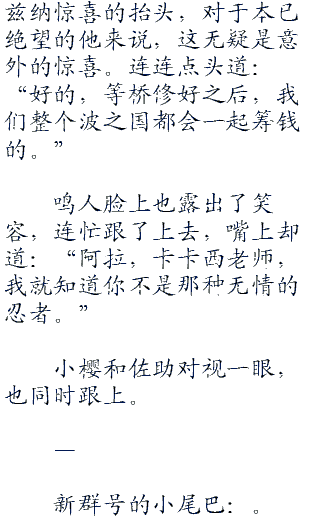 兹纳惊喜的抬头，对于本已
绝望的他来说，这无疑是意
外的惊喜。连连点头道：
“好的，等桥修好之后，我
们整个波之国都会一起筹钱
的。”
鸣人脸上也露出了笑
容，连忙跟了上去，嘴上却
道：“阿拉，卡卡西老师，
我就知道你不是那种无情的
忍者。”
小樱和佐助对视一眼，
也同时跟上。
—
新群号的小尾巴：。